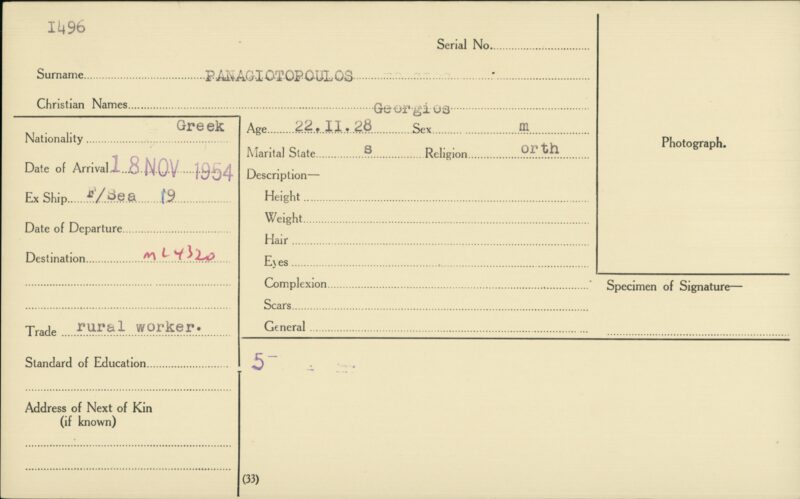 I496
Serial No.
Surname PANAGIOTOPOULOS
Christian Names Georgios
Nationality Greek
Date of Arrival 18 NOV 1954
Ex Ship F/Sea 19
Date of Departure
Destination ML4320
Trade rural worker.
Standard of Education
Address of Next of Kin
(if known)
Age 22.II.28 Sex m
Marital State s Religion orth
Description—
Height
Weight
Hair
Eyes
Complexion
Scars
General
5-
(33)
Photograph.
Specimen of Signature—